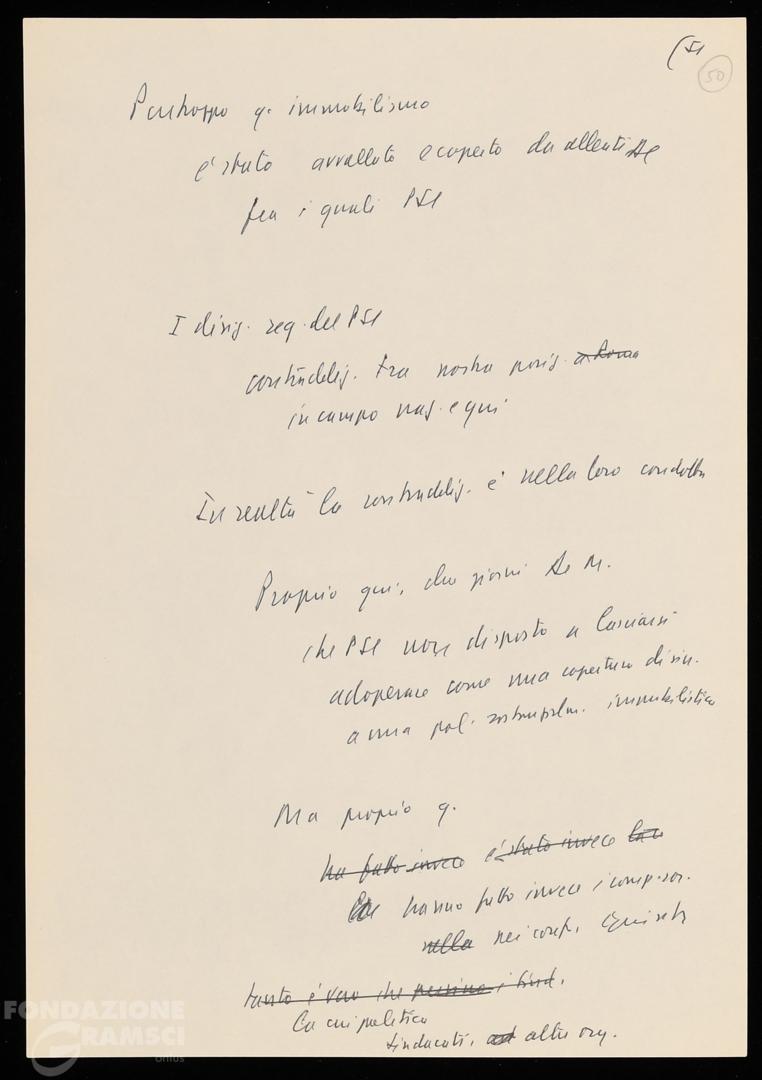 (51
50
Purtroppo q. immobilismo
è stato avvallato e coperto da alleati De
fra i quali PSI
I dirig. reg. del PSI
contraddiz. tra nostra posiz. a Roma
in campo naz. e qui
In realtà la contraddiz. è nella loro condotta
Proprio qui, due giorni De M.
che PSI non disposto a lasciarsi
adoperare come una copertura di sin.
a una pol. sostanzialm. immobilistica
Ma proprio q.
ha fatto invece è stato invece
hanno fatto invece i comp. soc.
nella nei conf.
tanto è vero che persino i sind.
La cui politica
sindacati, ad altre org.
FONDAZIONE
GRAMSCI
onlus